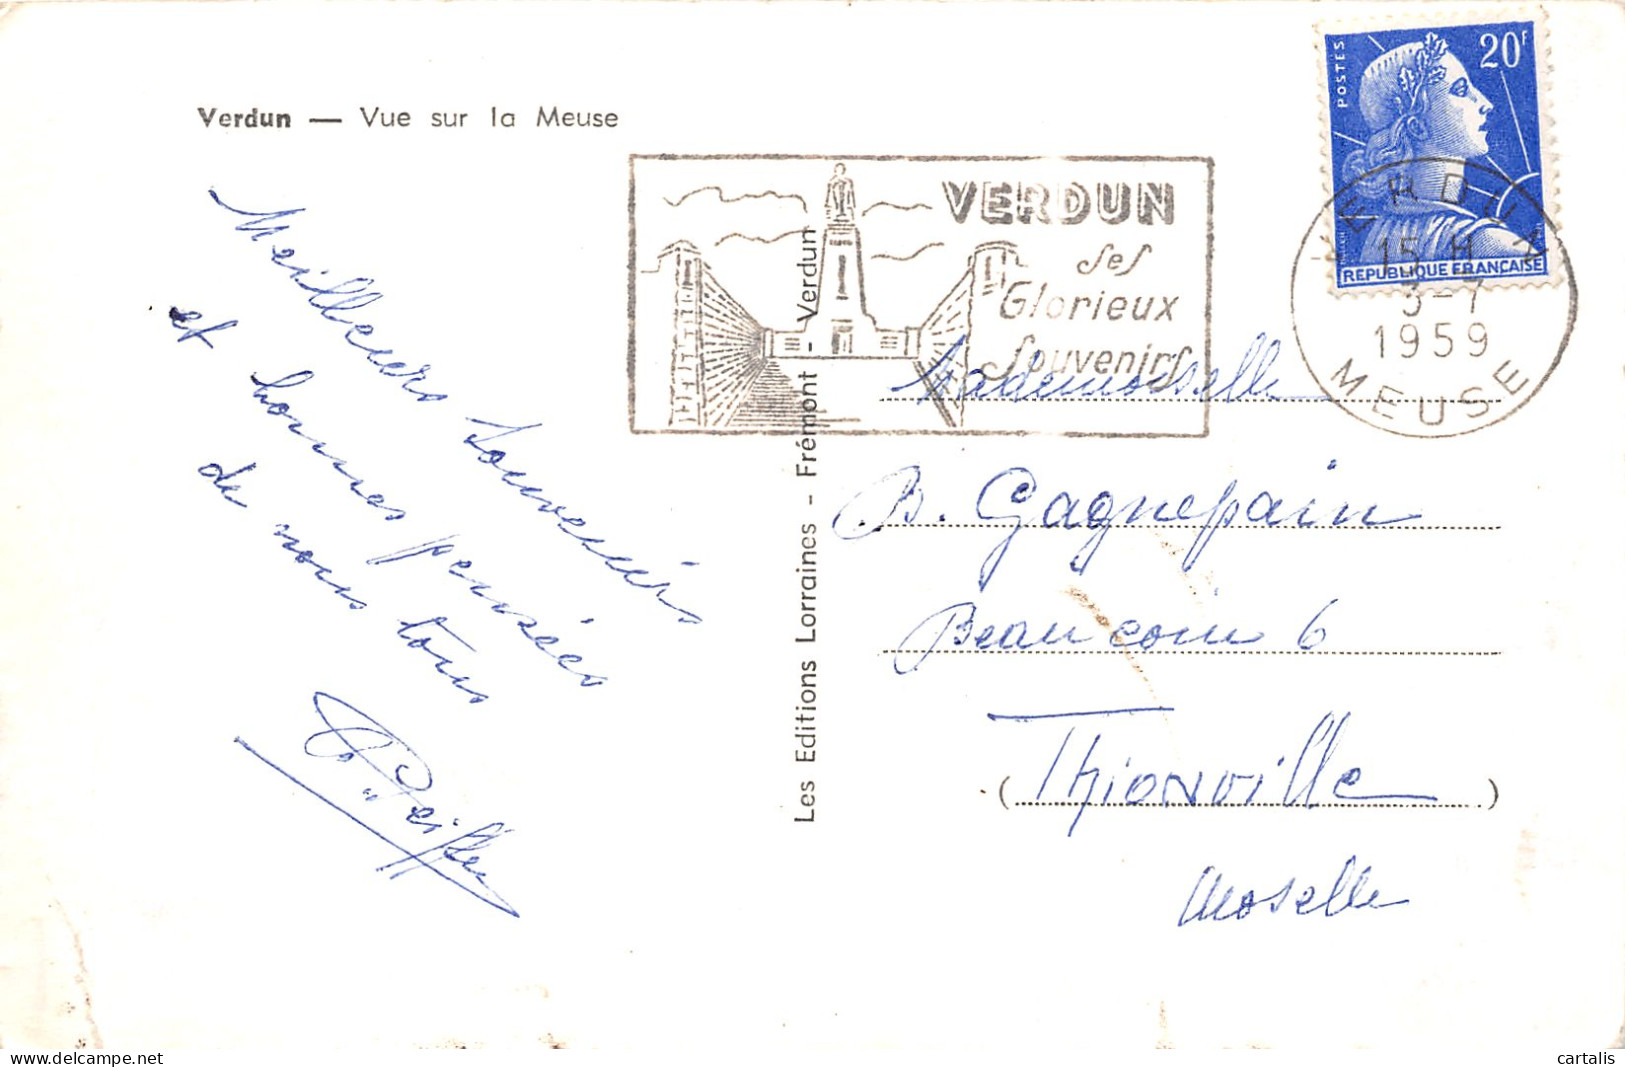 Verdun — Vue sur la Meuse
Meilleurs souvenirs
et bonnes pensées
de nous tous
Les Editions Lorraines - Frémont - Verdun
VERDUN
ses
Glorieux
Souvenirs
POSTES
20F
REPUBLIQUE FRANÇAISE
VERDUN
15 H
3-7
1959
MEUSE
Mademoiselle
B. Gagnepain
Beau coin 6
(Thionville)
Moselle
cartalis